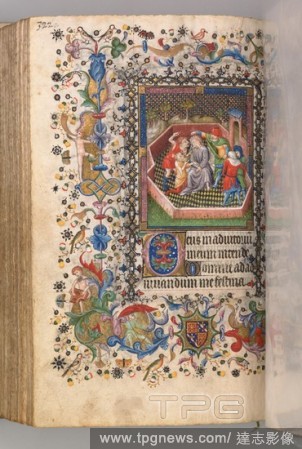 Deus in adiutoriu
meum intende
Domine ad ad
iuuandum me festina.
TPG
www.tpgnews.com/達志影像